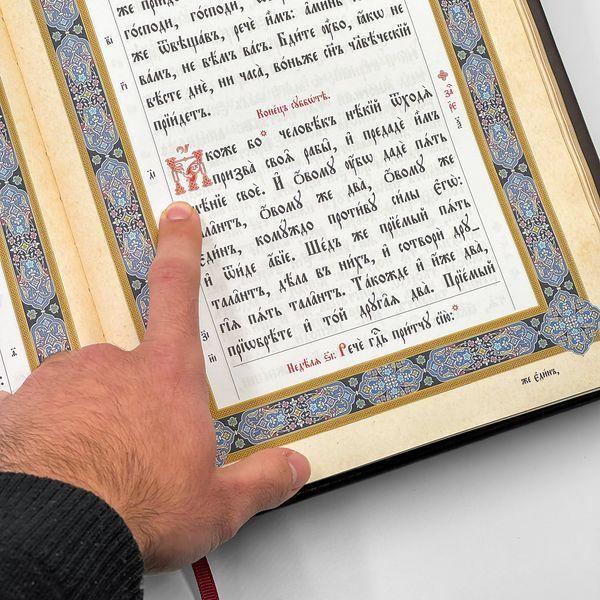 же прїид
господи, господи,
же ѿвѣща́въ, речѐ и҆̀мъ: а҆ми́нь
ва́мъ, не вѣ́мъ ва́съ. Бди́те ᲂу҆̀бо, ꙗ҆́кѡ не
вѣ́сте днѐ, ни часа̀, во́ньже сн҃ъ чл҃вѣ́ческїй
прїи́детъ.
Коне́цъ сꙋббѡ́тѣ.
Ꙗ҆́коже бо человѣ́къ нѣ́кїй ѿходѧ̀
призва̀ своѧ̑ рабы̑, и҆ предадѐ и҆̀мъ
и҆мѣ́нїе своѐ. И҆ ѻ҆́вомꙋ ᲂу҆́бѡ дадѐ пѧ́ть
тала̑нтъ, ѻ҆́вомꙋ же два̀, ѻ҆́вомꙋ же
є҆ди́нъ, комꙋ́ждо проти́вꙋ си́лы є҆гѡ̀:
и҆ ѿи́де а҆́бїе. Ше́дъ же прїе́мый пѧ́ть
тала̑нтъ, дѣ́ла въ ни́хъ, и҆ сотворѝ дрꙋ-
гі̑ѧ пѧ́ть тала̑нтъ. Та́кожде и҆ и҆́же два̀,
прїѡбрѣ́те и҆ то́й дрꙋга̑ѧ два̀. Прїе́мый
Недѣ́лѧ ѕ҃і: Речѐ гд҇ь при́тчꙋ сїю̀:
же є҆ди́нъ,